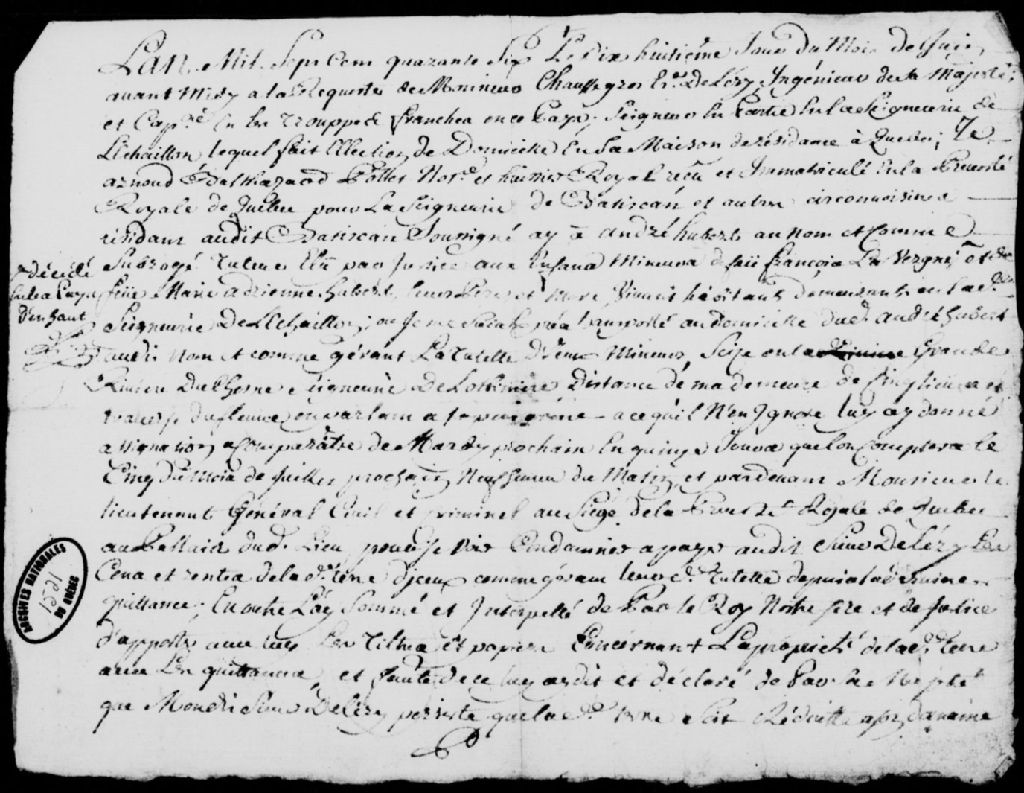 L'an Mil Sept Cent quarante Six Le dix huitiéme Jour du Mois de Juin
avant Midy a la Requeste de Monsieur Chaussegros Er. De Léry Ingénieur de Sa Majesté
et Capne. En les Trouppes francheu ence Pays, Seigneur En Partie En la Seigneurie de
L'échaillon, lequel fait Election de Domicille En Sa Maison de résidance à Quebec, Je
arnoud Balthazard Pollet Nore. et huissier Royal reçu et Immatriculé En la Prevosté
Royale de Quebec pour La Seigneurie de Batiscan et autres circonvoisines
résidant audit Batiscan Soussigné ay à andré hubert au nom et comme
Subrogé Tuteur Elû par Justice aux Enfans Mineurs de feu françois La Vergne et de
feüe Marie adrienne hubert, leurs Pere et Mere Vivants habitans demeurants en lad.
Seigneurie De L'Echaillon, ou Je me suis transporté au domicille dud. andré hubert
audit Nom et comme gérant La tutelle d'iceux Mineurs, Seize en la Grande
Riviere Duchesne Seigneurie De Lotbiniere Distance de ma demeure de Cinq lieües et
traverse du fleuve, en parlant a sa personne a ce qu'il N'en Ignore luy ay donné
assignation, a Comparoître de Mardy prochain En quinze Jours que l'on Comptera Le
Cinq du Mois de Juillet prochain, Neuf heures du Matin, et pardevant Monsieur le
lieutenant Général Civil et criminel au Siége de la Prevosté Royale de Quebec
au Pallais dud. Lieu, pour se Voir Condamner a payer audit Sieur De Léry Les
Cens et rentes de la de. terre d'jceux comme gérant leur de. Tutelle depuis la derniere
quittance, En outre L'ay Sommé et Interpellé de Par le Roy Notre Sire et de Justice
d'apporter avec luy Les Titres et papiers Concernant La proprieté de lad. terre
avec Les quittances, et faute de ce luy ay dit et declaré de Par
que Mondit Sieur De Léry persiste que la de. terre Soit Réduitte
décédé
En les Pays
D'en haut
ARCHIVES NATIONALES
DU QUÉBEC
1521